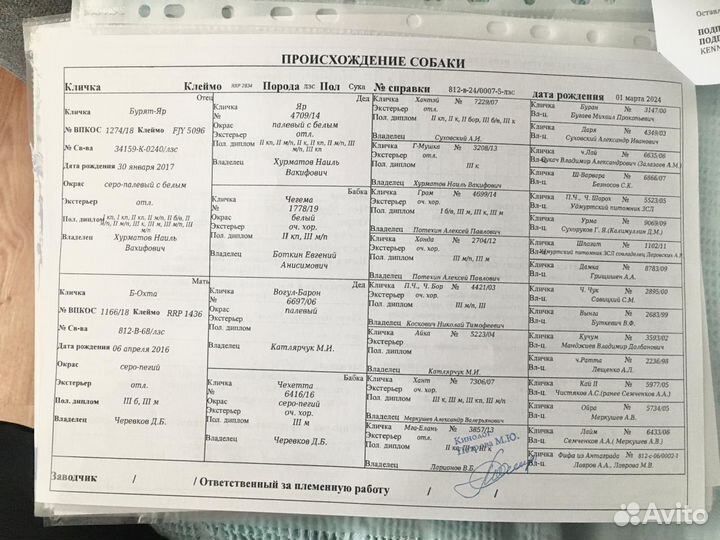 Оставл
ПОДП
ПОДП
KENN
ПРОИСХОЖДЕНИЕ СОБАКИ
Кличка Клеймо RRP 2834 Порода ЛЗС Пол Сука № справки 812-в-24/0007-5-лзс дата рождения 01 марта 2024
Отец
Кличка Бурят-Яр
№ ВПКОС 1274/18 Клеймо FJY 5096
№ Св-ва 34159-К-0240/лзс
Дата рождения 30 января 2017
Окрас серо-палевый с белым
Экстерьер отл.
Пол. диплом
Владелец Хурматов Наиль Вакифович
Мать
Кличка Б-Охта
№ ВПКОС 1166/18 Клеймо RRP 1436
№ Св-ва 812-В-68/лзс
Дата рождения 06 апреля 2016
Окрас серо-пегий
Экстерьер отл.
Пол. диплом III б, III м
Владелец Черевков Д.Б.
Дед
Кличка Яр
№ 4709/14
Окрас палевый с белым
Экстерьер отл.
Пол. диплом II кп, II м/п, II к, II кп, II м/п, III м/п, III кп
Владелец Хурматов Наиль Вакифович
Бабка
Кличка Чегема
№ 1778/19
Окрас белый
Экстерьер оч. хор.
Пол. диплом II кп, III м/п
Владелец Баткин Евгений Анисимович
Дед
Кличка Вогул-Барон
№ 6697/06
Окрас палевый
Экстерьер
Пол. диплом
Владелец Катлярчук М.И.
Бабка
Кличка Чехетта
№ 6416/16
Окрас серо-пегий
Экстерьер оч. хор.
Пол. диплом
Владелец Черевков Д.Б.
Кличка Хантэй № 7229/07
Экстерьер отл.
Пол. диплом II кп, II м, II к, II бор, III б/в, III к
Владелец Суховский А.И.
Кличка Г-Мушка № 3208/13
Экстерьер отл.
Пол. диплом III к
Владелец Хурматов Наиль Вакифович
Кличка Грам № 4699/14
Экстерьер оч. хор.
Пол. диплом I б/в, III м, III к, III м
Владелец Потехин Алексей Павлович
Кличка Хонда № 2704/12
Экстерьер оч. хор.
Пол. диплом III м/п
Владелец Потехин Алексей Павлович
Кличка П.Ч., Ч. Бор № 4421/03
Экстерьер оч. хор.
Пол. диплом III м, III
Владелец Коскович Николай Тимофеевич
Кличка Айка № 5223/04
Экстерьер
Пол. диплом
Владелец Катлярчук М.И.
Кличка Хант № 7306/07
Экстерьер оч. хор.
Пол. диплом III к, III м, III кп, III к, III м
Владелец Меркушев Александр Валерьянович
Кличка Мга-Елань № 3857/13
Экстерьер отл.
Пол. диплом
Владелец Ларионов В.Б.
Кличка Буран № 3147/00
Вл-ц. Бугаев Михаил Прокатьевич
Кличка Даря № 4349/03
Вл-ц. Суховский Александр Иванович
Кличка ч.Лай № 6635/06
Вл-ц. Сукач Владимир Александрович (Залазаев А.М.)
Кличка Ш-Варвара № 6866/07
Вл-ц. Безносов С.К.
Кличка П.Ч., Ч. Шарох № 5523/05
Вл-ц. Удмуртский питомник ЗСЛ
Кличка Урма № 9069/09
Вл-ц. Сухоруков Г. Я.(Калимуллин Д.М.)
Кличка Шпагат № 1102/11
Удмуртский питомник ЗСЛ совладелец
Кличка Дамка № 8783/09
Вл-ц. Гришишен А.А.
Кличка Ч. Чук № 2895/00
Вл-ц. Савицкий С.М.
Кличка Вынга № 2683/99
Вл-ц. Буткевич В.Ф.
Кличка Кучум № 3593/02
Вл-ц. Манджиев Владимир Далбанович
Кличка ч.Ратта № 2236/98
Вл-ц. Лещенко А.Л.
Кличка Кай II № 5977/05
Вл-ц. Чистяков А.С.(ранее Семченков А.А.)
Кличка Ойра № 5734/05
Вл-ц. Меркушев А.В.
Кличка Лайм № 6433/06
Вл-ц. Семченков А.А.( Меркушев А.В.)
Кличка Фифа из Антаграда № 812-с-06/0002-1
Вл-ц. Лавров А.А., Лаврова М.В.
Кинолог
М.Ю.
Заводчик / / Ответственный за племенную работу / /
Avito